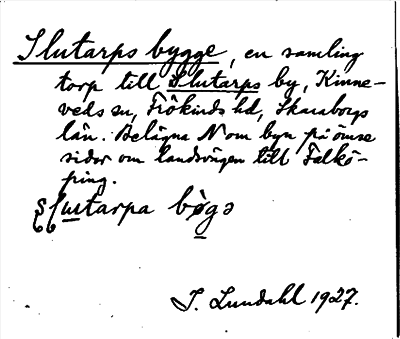 Slutarps bygge, en samling
torp till Slutarps by, Kinne-
veds sn, Frökinds hd, Skaraborgs
län. Belägna N om byn på ömse
sidor om landsvägen till Falkö-
ping.
slutarpa bøgə
I. Lundahl 1927.